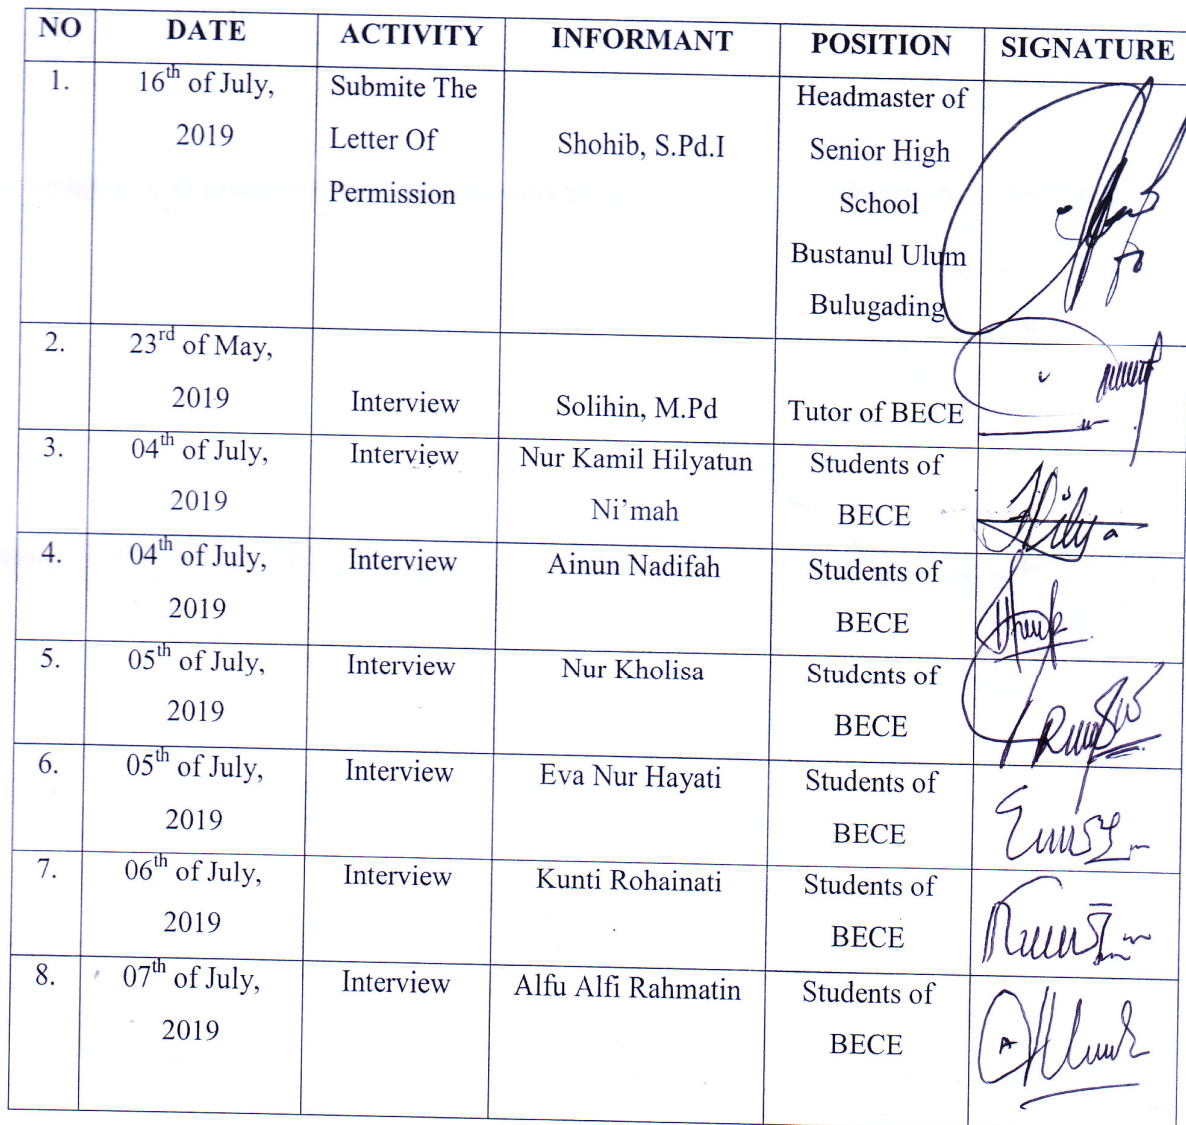 NO DATE ACTIVITY INFORMANT POSITION SIGNATURE
1. 16th of July, Submite The Headmaster of
2019 Letter Of Shohib, S.Pd.I Senior High
Permission School
Bustanul Ulum
Bulugading
2. 23rd of May,
2019 Interview Solihin, M.Pd Tutor of BECE
3. 04th of July, Interview Nur Kamil Hilyatun Students of
2019 Ni'mah BECE
4. 04th of July, Interview Ainun Nadifah Students of
2019 BECE
5. 05th of July, Interview Nur Kholisa Students of
2019 BECE
6. 05th of July, Interview Eva Nur Hayati Students of
2019 BECE
7. 06th of July, Interview Kunti Rohainati Students of
2019 BECE
8. 07th of July, Interview Alfu Alfi Rahmatin Students of
2019 BECE